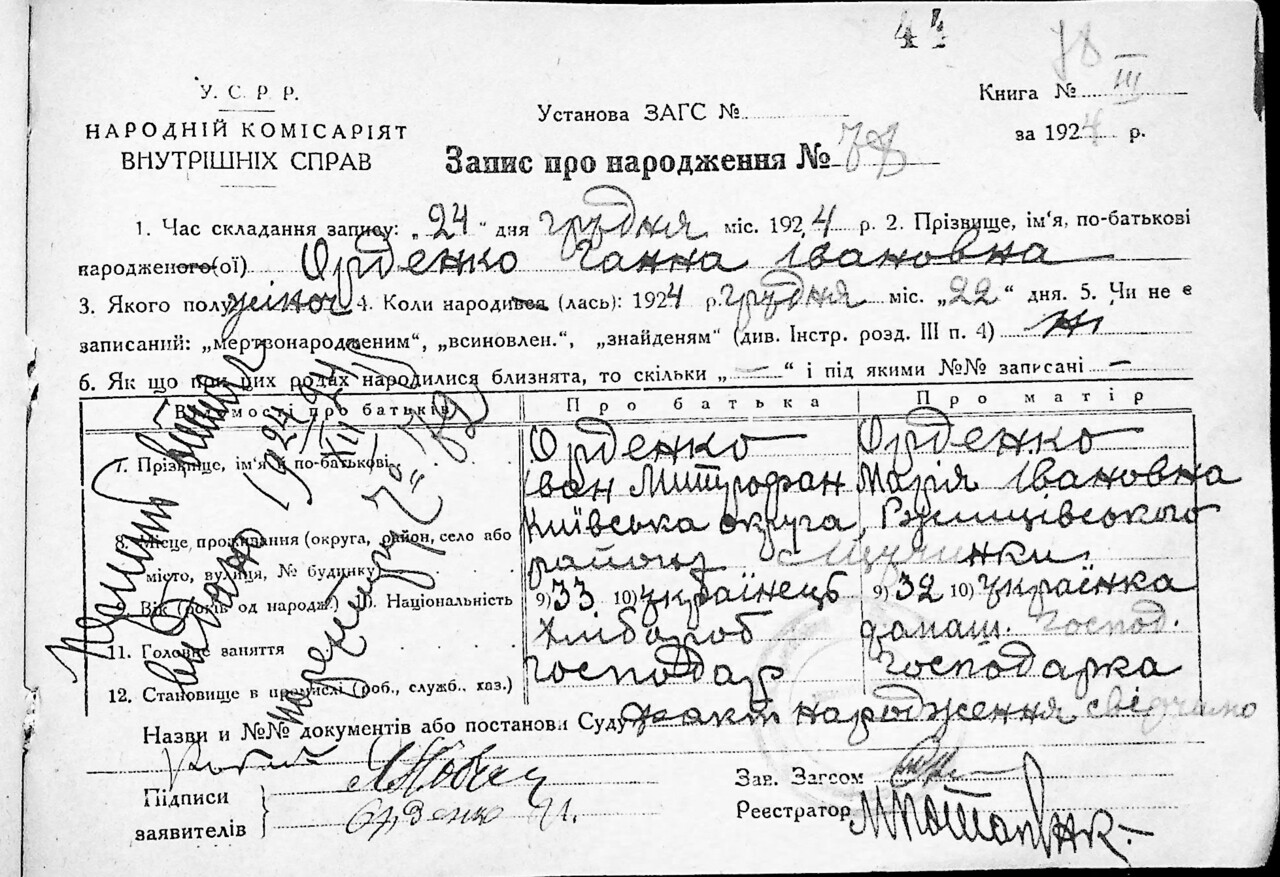 44
78
У. С. Р. Р.
НАРОДНІЙ КОМІСАРІЯТ
ВНУТРІШНІХ СПРАВ
Установа ЗАГС №
Книга № III
за 1924 р.
Запис про народження № 78
1. Час складання запису: „24" дня грудня міс. 1924 р. 2. Прізвище, ім'я, по-батькові
народженого(ої) Орденко Ганна Івановна
3. Якого полу жіноч 4. Коли народився (лась): 1924 р. грудня міс. „22" дня. 5. Чи не є
записаний: „мертвонародженим", „всиновлен.", „знайденям" (див. Інстр. розд. III п. 4) ні
6. Як що при цих родах народилися близнята, то скільки „—" і під якими №№ записані —
Відомості про батьків
Про батька
Про матір
7. Прізвище, ім'я й по-батькові
Орденко
Іван Митрофан
Орденко
Марія Івановна
8. Місце проживання (округа, район, село або
місто, вулиця, № будинку)
Київська округа, Ржищівського
району
9. Вік (років од народж.) 10. Національність
9) 33 10) українець
9) 32 10) українка
11. Головне заняття
хлібороб
домаш. господ.
12. Становище в промислі (роб., служб., хаз.)
господар
господарка
Назви и №№ документів або постанови Суду факт народження свідчимо
Підписи
заявителів
Зав. Загсом
Реєстратор
1924
XII 24